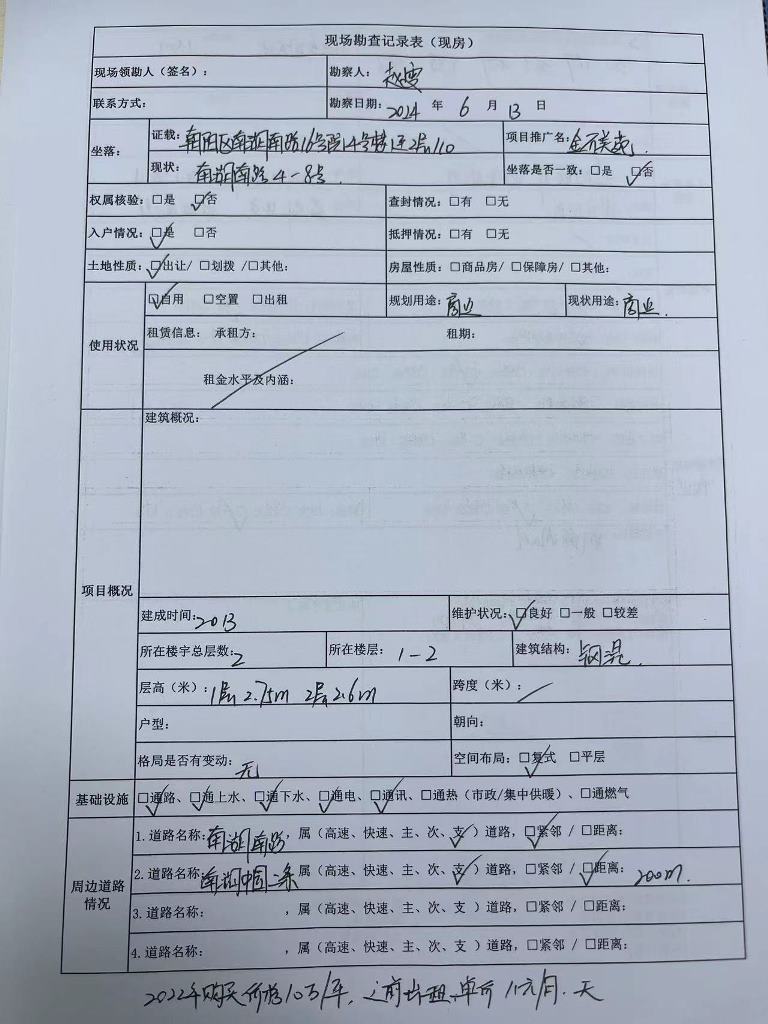 现场勘查记录表（现房）
现场领勘人（签名）： 勘察人：
联系方式： 勘察日期：2024 年 6 月 13 日
坐落： 证载：朝阳区南湖南路16号院14号楼1至2层110 项目推广名：
现状：南湖南路4-8号. 坐落是否一致：□是 ☑否
权属核验：□是 ☑否 查封情况：□有 □无
入户情况：☑是 □否 抵押情况：□有 □无
土地性质：☑出让/ □划拨 /□其他： 房屋性质：□商品房/ □保障房/ □其他：
使用状况 ☑自用 □空置 □出租 规划用途：商业 现状用途：商业.
租赁信息： 承租方： 租期：
租金水平及内涵：
项目概况 建筑概况：
建成时间：2013 维护状况：☑良好 □一般 □较差
所在楼宇总层数：2 所在楼层：1-2 建筑结构：钢混.
层高（米）：1层2.75m 2层2.6m 跨度（米）：/
户型： 朝向：
格局是否有变动：无 空间布局：☑复式 □平层
基础设施 ☑通路、☑通上水、☑通下水、☑通电、☑通讯、□通热（市政/集中供暖）、□通燃气
周边道路情况 1.道路名称：南湖南路，属（高速、快速、主、次、支✓）道路，☑紧邻 / □距离：
2.道路名称：南湖中园二条，属（高速、快速、主、次、支✓）道路，□紧邻 / ☑距离：200m.
3.道路名称： ，属（高速、快速、主、次、支 ）道路，□紧邻 / □距离：
4.道路名称： ，属（高速、快速、主、次、支 ）道路，□紧邻 / □距离：
2022年购买价格10万/平，之前出租，单价 元/月.天